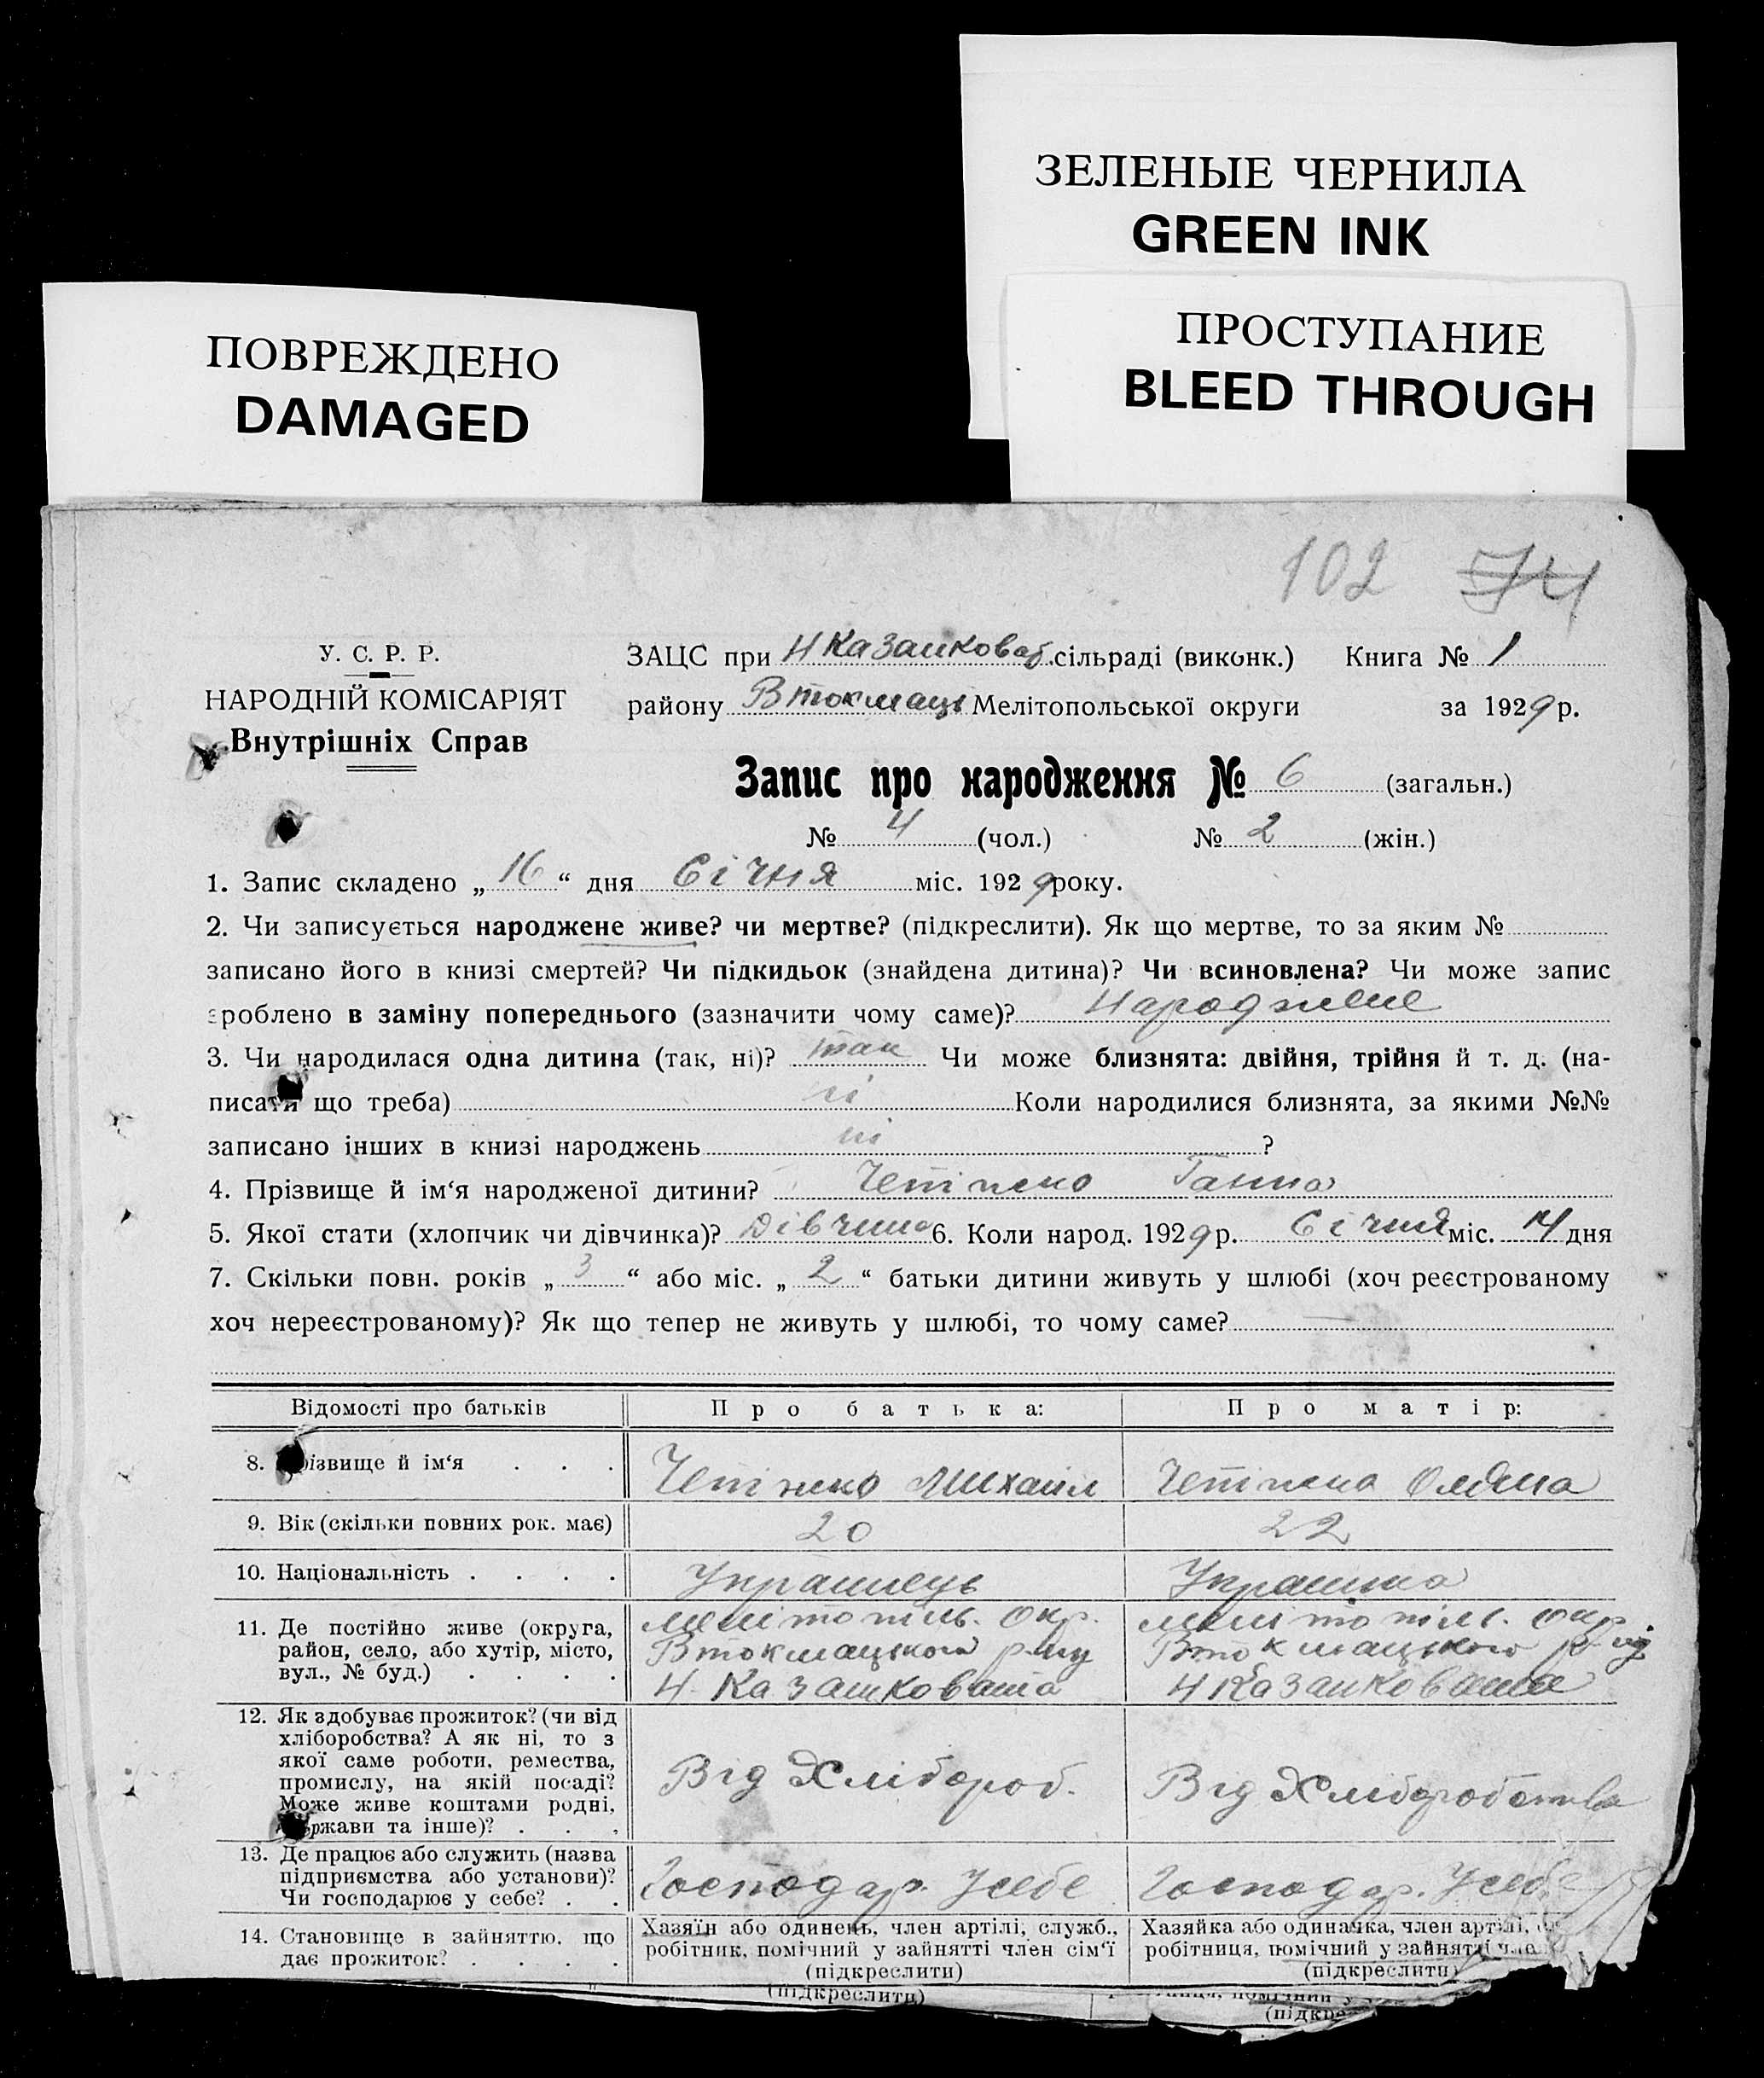 ЗЕЛЕНЫЕ ЧЕРНИЛА
GREEN INK
ПРОСТУПАНИЕ
BLEED THROUGH
ПОВРЕЖДЕНО
DAMAGED
102 74
У. С. Р. Р.
НАРОДНІЙ КОМІСАРІЯТ
Внутрішніх Справ
ЗАЦС при Н Казанковат. сільраді (виконк.) Книга № 1
району Втокмаць Мелітопольської округи за 1929 р.
Запис про народження № 6 (загальн.)
№ 4 (чол.) № 2 (жін.)
1. Запис складено „ 16 “ дня Січня міс. 1929 року.
2. Чи записується народжене живе? чи мертве? (підкреслити). Як що мертве, то за яким №
записано його в книзі смертей? Чи підкидьок (знайдена дитина)? Чи всиновлена? Чи може запис
зроблено в заміну попереднього (зазначити чому саме)? Народжене
3. Чи народилася одна дитина (так, ні)? так Чи може близнята: двійня, трійня й т. д. (на-
писати що треба) ні Коли народилися близнята, за якими №№
записано інших в книзі народжень ні ?
4. Прізвище й ім‘я народженої дитини? Ганна
5. Якої стати (хлопчик чи дівчинка)? Дівчина 6. Коли народ. 1929 р. Січня міс. 14 дня
7. Скільки повн. років „ 3 “ або міс. „ 2 “ батьки дитини живуть у шлюбі (хоч реєстрованому
хоч нереєстрованому)? Як що тепер не живуть у шлюбі, то чому саме?
Відомості про батьків Про батька: Про матір:
8. Прізвище й ім‘я Михаил
9. Вік (скільки повних рок. має) 20 22
10. Національність Українець Українка
11. Де постійно живе (округа, район, село, або хутір, місто, вул., № буд.)
Мелітопіль. окр. Мелітопіль. окр
Втокмацького р-ну Втокмацького
Н. Казанковата Н Казанковата
12. Як здобуває прожиток? (чи від
хліборобства? А як ні, то з
якої саме роботи, ремества,
промислу, на якій посаді?
Може живе коштами родні,
держави та інше)?
Від Хлібороб. Від Хліборобства
13. Де працює або служить (назва
підприємства або установи)?
Чи господарює у себе?
Господар. У себе Господар. У себе
14. Становище в зайняттю, що
дає прожиток?
Хазяїн або одинець, член артілі, служб.,
робітник, помічний у зайнятті член сім‘ї
(підкреслити)
Хазяйка або одиначка, член артілі,
робітниця, помічний у зайнятті
(підкреслити)
(підкреслити)